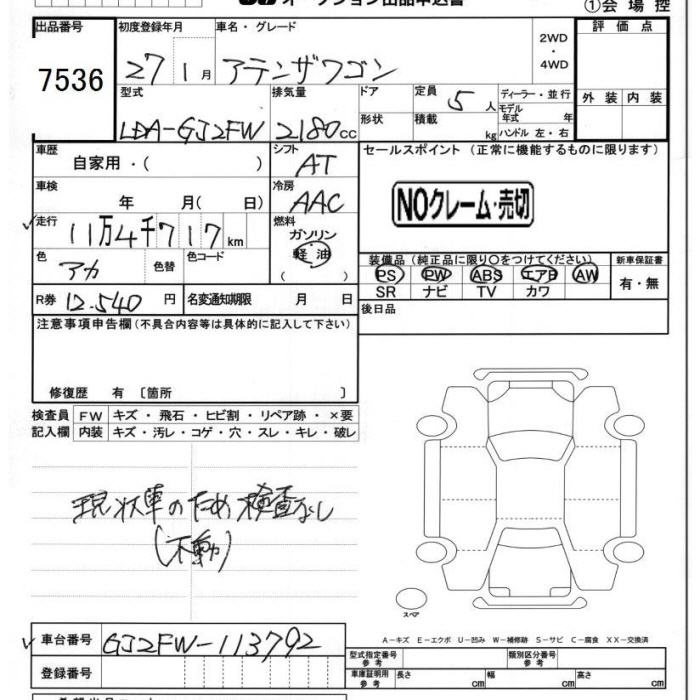 オークション出品申込書
①会場控
出品番号 初度登録年月 車名・グレード 2WD ・ 4WD 評価点
7536 27 1月 アテンザワゴン
型式 排気量 ドア 定員 5人 ディーラー・並行 外装 内装
LDA-GJ2FW 2180cc 形状 積載 kg モデル年式 年 ハンドル 左・右
車歴 シフト セールスポイント (正常に機能するものに限ります)
自家用・( ) AT
車検 冷房
年 月( 日) AAC NOクレーム・売切
走行 燃料
11万4千717km ガソリン
軽・油
( )
色 色替 色コード
アカ
装備品 (純正品に限り○をつけてください) 新車保証書
PS PW ABS エアB AW 有・無
SR ナビ TV カワ
R券 12.540 円 名変通知期限 月 日
後日品
注意事項申告欄(不具合内容等は具体的に記入して下さい)
修復歴 有 〔箇所 〕
検査員 FW キズ・飛石・ヒビ割・リペア跡・×要
記入欄 内装 キズ・汚レ・コゲ・穴・スレ・キレ・破レ
現状車のため検査なし
(不動)
スペア
A-キズ E-エクボ U-凹み W-補修跡 S-サビ C-腐食 XX-交換済
車台番号 GJ2FW-113792
登録番号
型式指定番号 参考 類別区分番号 参考
車庫証明用 参考 長さ cm 幅 cm 高さ cm